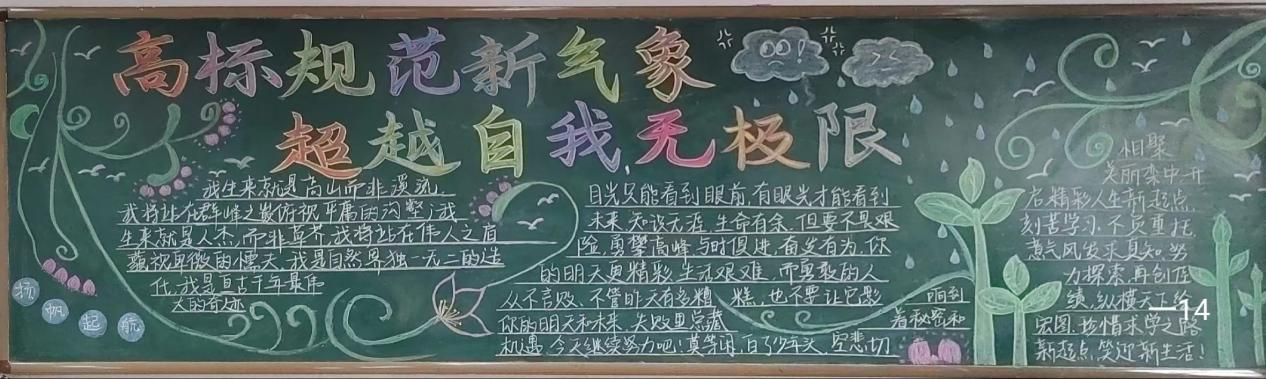 高标规范新气象
超越自我无极限
我生来就是高山而非溪流，
我将站在群峰之巅俯视平庸的沟壑；我
生来就是人杰，而非草芥，我将站在伟人之肩
藐视卑微的懦夫。我是自然界独一无二的造
化，我是亘古千年最伟
大的奇迹
扬帆起航
目光只能看到眼前，有眼光才能看到
未来。知识无涯，生命有余，但要不畏艰
险，勇攀高峰，与时俱进，奋发有为，你
的明天更精彩。生活艰难，而勇敢的人
从不言败。不管昨天有多糟糕，也不要让它影响到
你的明天和未来。失败里总藏着秘密和
机遇，今天继续努力吧！莫等闲，白了少年头，空悲切
相聚
美丽栾中开
启精彩人生新起点
刻苦学习，不负重托
意气风发求真知，努
力探索再创佳
绩，纵横天下
宏图，珍惜求学之路
新起点，笑迎新生活！
14